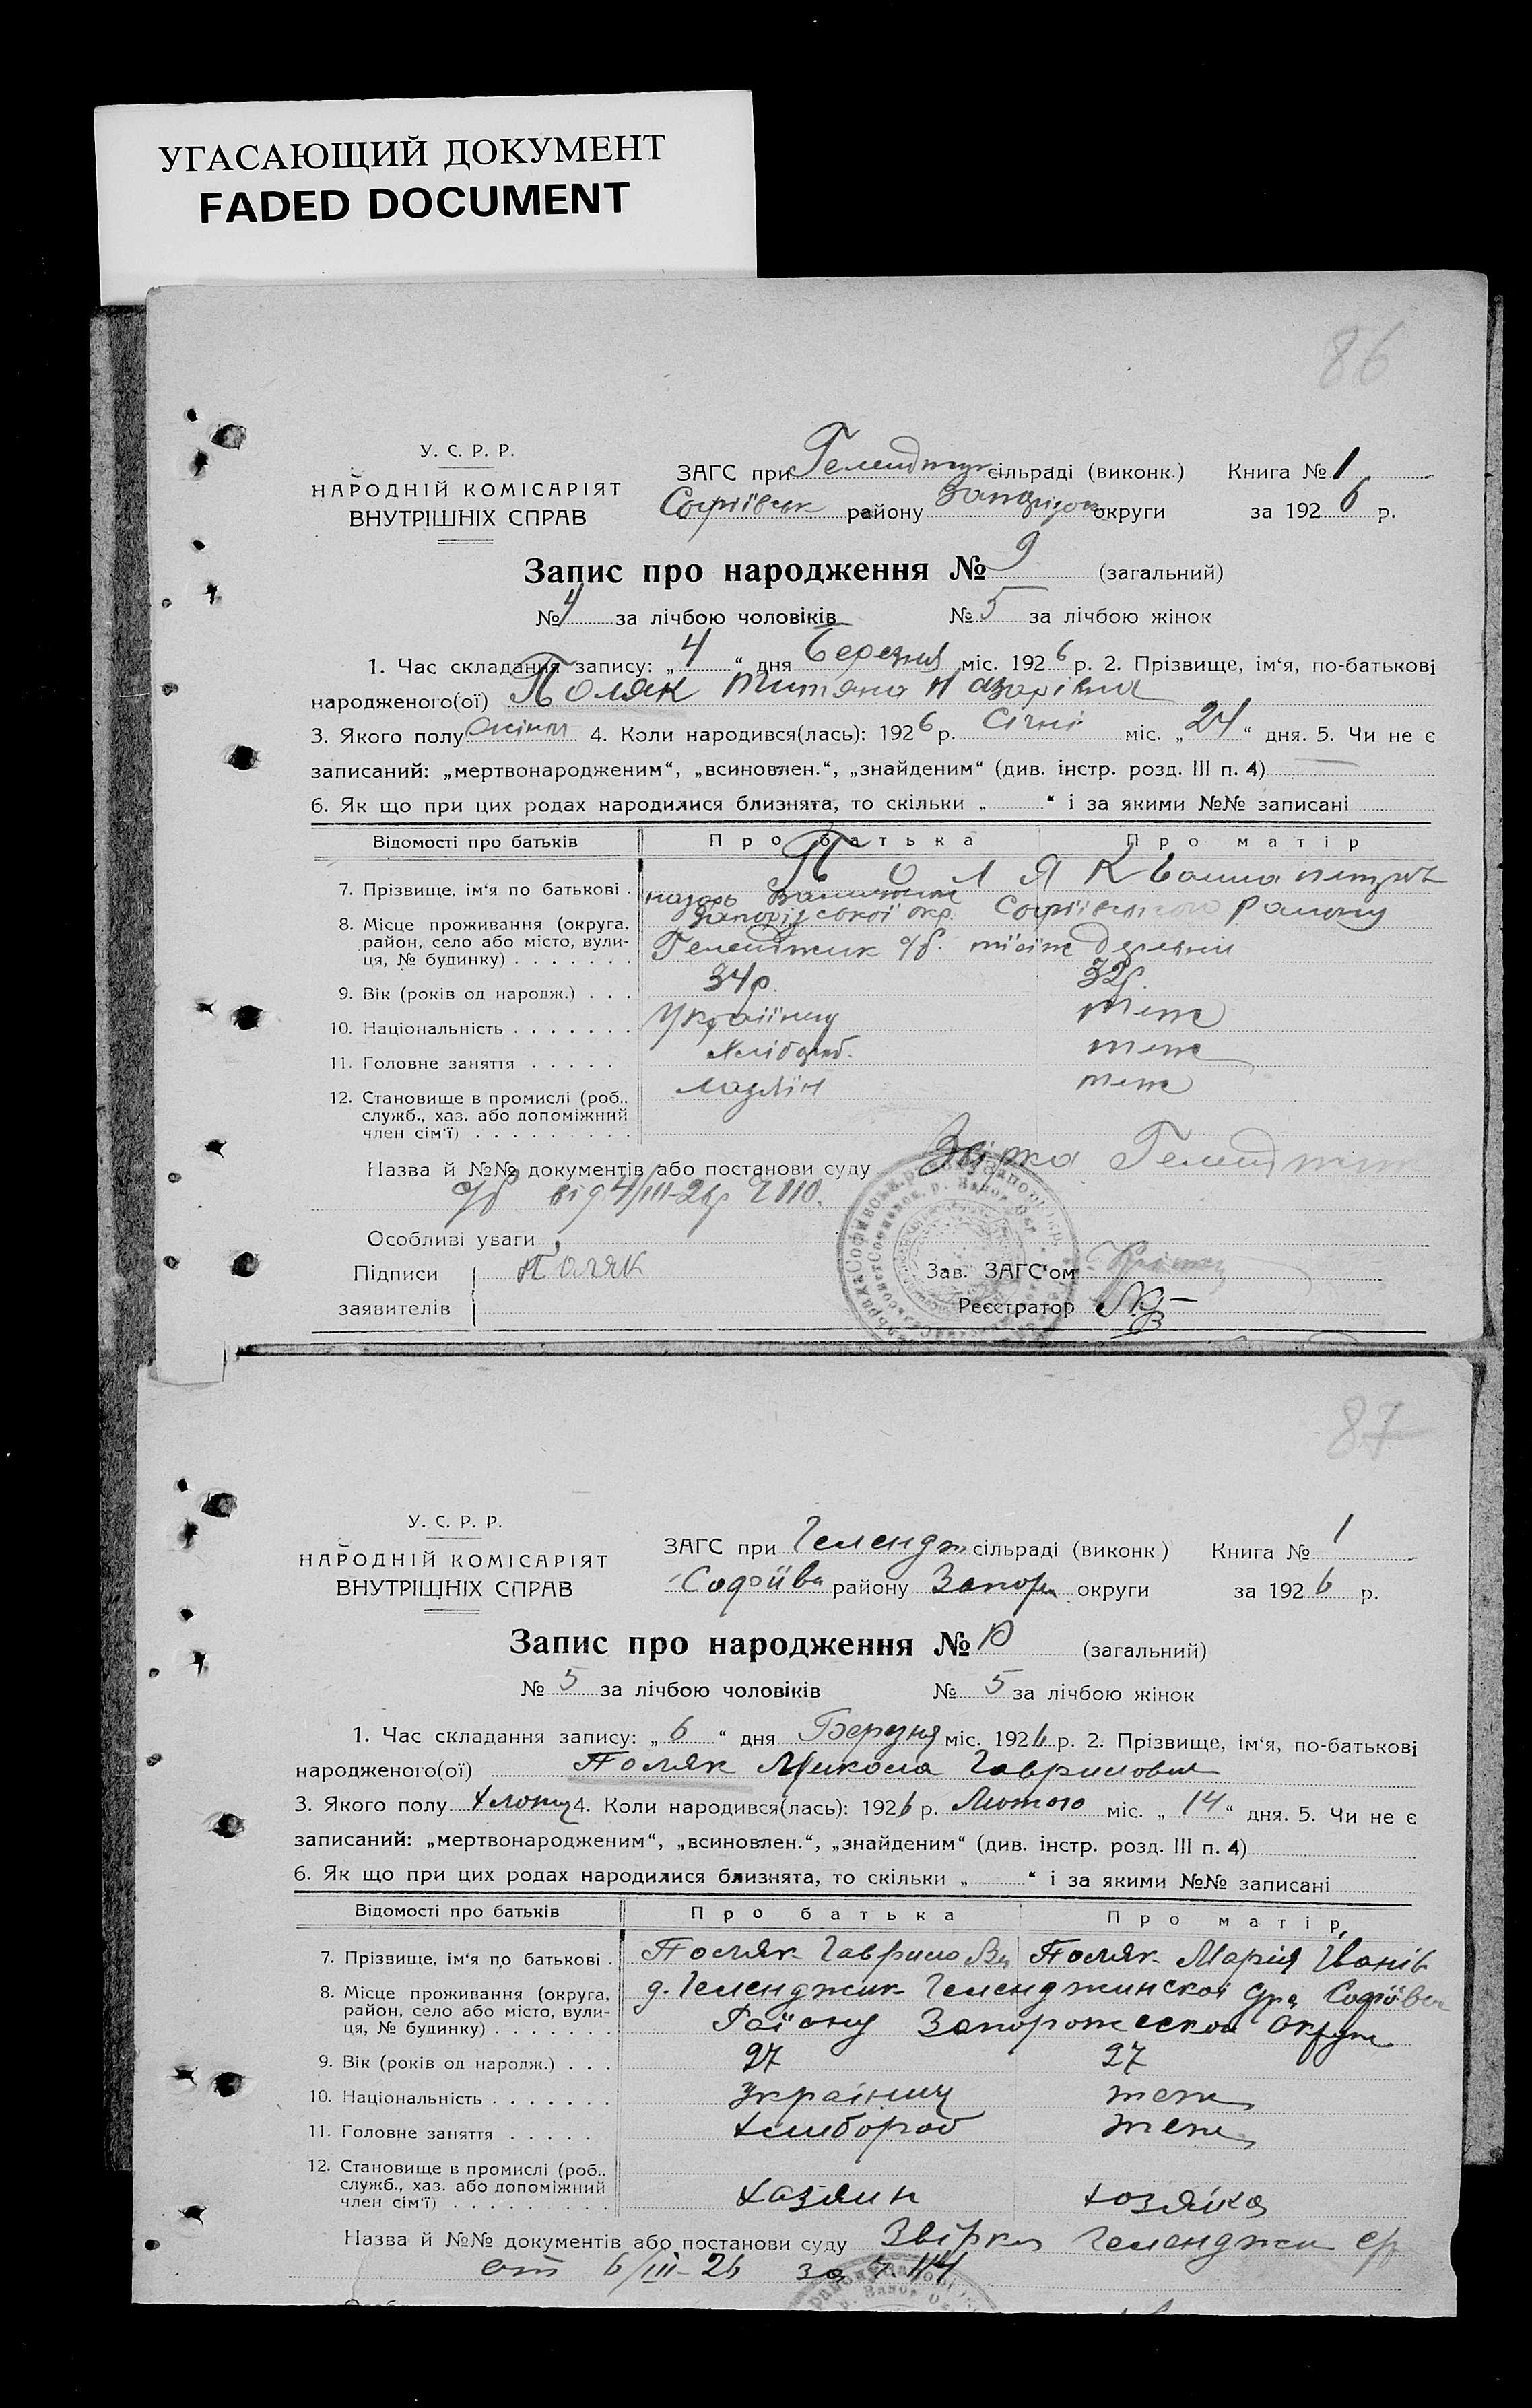 УГАСАЮЩИЙ ДОКУМЕНТ
FADED DOCUMENT
86
У. С. Р. Р.
НАРОДНІЙ КОМІСАРІЯТ
ВНУТРІШНІХ СПРАВ
ЗАГС при Геленджик сільраді (виконк.) Книга № 1
Софіївськ району округи за 1926 р.
Запис про народження № 9 (загальний)
№ 4 за лічбою чоловіків № 5 за лічбою жінок
1. Час складання запису: „4“ дня Березня міс. 1926 р. 2. Прізвище, ім‘я, по-батькові
народженого(ої) Поляк Титяна Назарівна
3. Якого полу жінки 4. Коли народився(лась): 1926 р. Січні міс. „24“ дня. 5. Чи не є
записаний: „мертвонародженим“, „всиновлен.“, „знайденим“ (див. інстр. розд. III п. 4)
6. Як що при цих родах народилися близнята, то скільки „ “ і за якими №№ записані
Відомості про батьків Про батька Про матір
7. Прізвище, ім‘я по батькові . ПОЛЯК
назарь
8. Місце проживання (округа, Запорізської окр. Софіївського району
район, село або місто, вули- Геленджик
ця, № будинку) . . . . . . .
9. Вік (років од народж.) . . . 34р. 32р.
10. Національність . . . . . . . Україниц теж
11. Головне заняття . . . . . Хлібороб. теж
12. Становище в промислі (роб., хазяїн теж
служб., хаз. або допоміжний
член сім‘ї) . . . . . . . . .
Назва й №№ документів або постанови суду Звірка Геленджик
с/р від 4/III-26р. №110.
Особливі уваги
Підписи Поляк Зав. ЗАГС‘ом
заявителів Реєстратор
87
У. С. Р. Р.
НАРОДНІЙ КОМІСАРІЯТ
ВНУТРІШНІХ СПРАВ
ЗАГС при Гелендж сільраді (виконк.) Книга № 1
Софіїв району Запор округи за 1926 р.
Запис про народження № 10 (загальний)
№ 5 за лічбою чоловіків № 5 за лічбою жінок
1. Час складання запису: „6“ дня Березня міс. 1926 р. 2. Прізвище, ім‘я, по-батькові
народженого(ої) Поляк Микола Гаврилович
3. Якого полу 4. Коли народився(лась): 1926 р. Лютого міс. „14“ дня. 5. Чи не є
записаний: „мертвонародженим“, „всиновлен.“, „знайденим“ (див. інстр. розд. III п. 4)
6. Як що при цих родах народилися близнята, то скільки „ “ і за якими №№ записані
Відомості про батьків Про батька Про матір
7. Прізвище, ім‘я по батькові . Поляк Гаврило Поляк Марія Іванів
8. Місце проживання (округа, д. Геленджик Геленджинской Софіївск
район, село або місто, вули- Району Запорожеской Округи
ця, № будинку) . . . . . . .
9. Вік (років од народж.) . . . 27 27
10. Національність . . . . . . . Україниц теж
11. Головне заняття . . . . . хлибороб теж
12. Становище в промислі (роб., хазяин хозяйка
служб., хаз. або допоміжний
член сім‘ї) . . . . . . . . .
Назва й №№ документів або постанови суду Звірка Геленджи с/р
от 6/III-26 за № 114